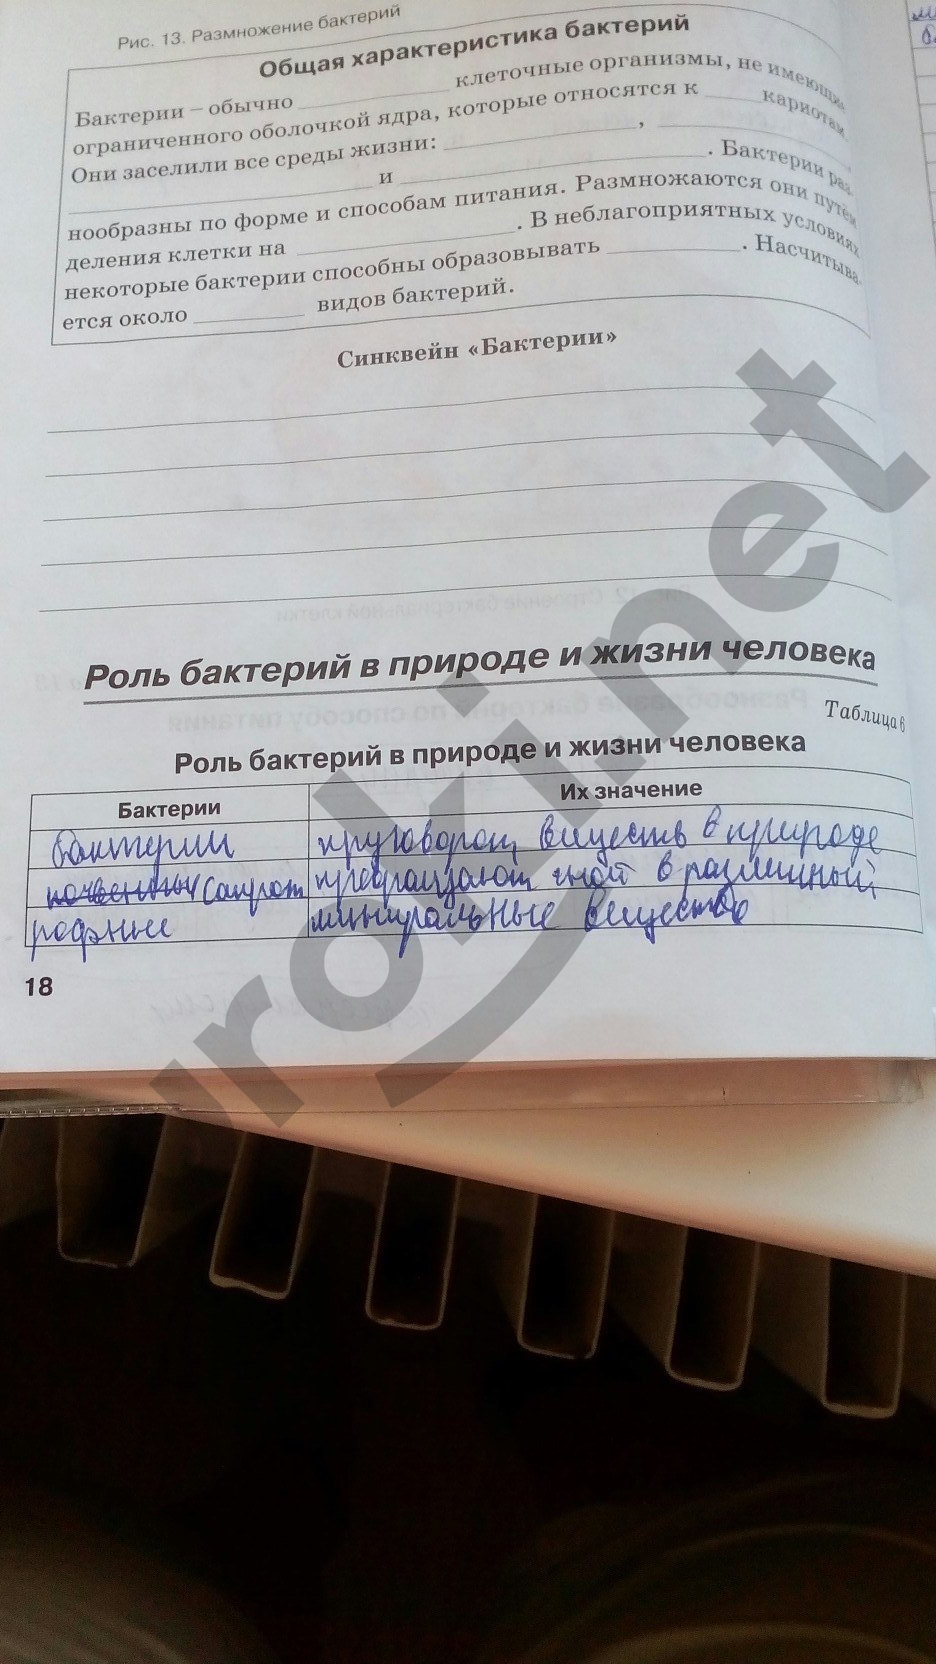 Рис. 13. Размножение бактерий
Общая характеристика бактерий
Бактерии – обычно ____ клеточные организмы, не имеющие
ограниченного оболочкой ядра, которые относятся к ____ кариотам
Они заселили все среды жизни: ____, ____
____ и ____. Бактерии раз-
нообразны по форме и способам питания. Размножаются они путём
деления клетки на ____. В неблагоприятных условиях
некоторые бактерии способны образовывать ____. Насчитыва-
ется около ____ видов бактерий.
Синквейн «Бактерии»
Роль бактерий в природе и жизни человека
Таблица 6
Роль бактерий в природе и жизни человека
Бактерии Их значение
бактерии круговорот веществ в природе
почвенные сапрот
рофные минеральные вещества
18
uroki.net